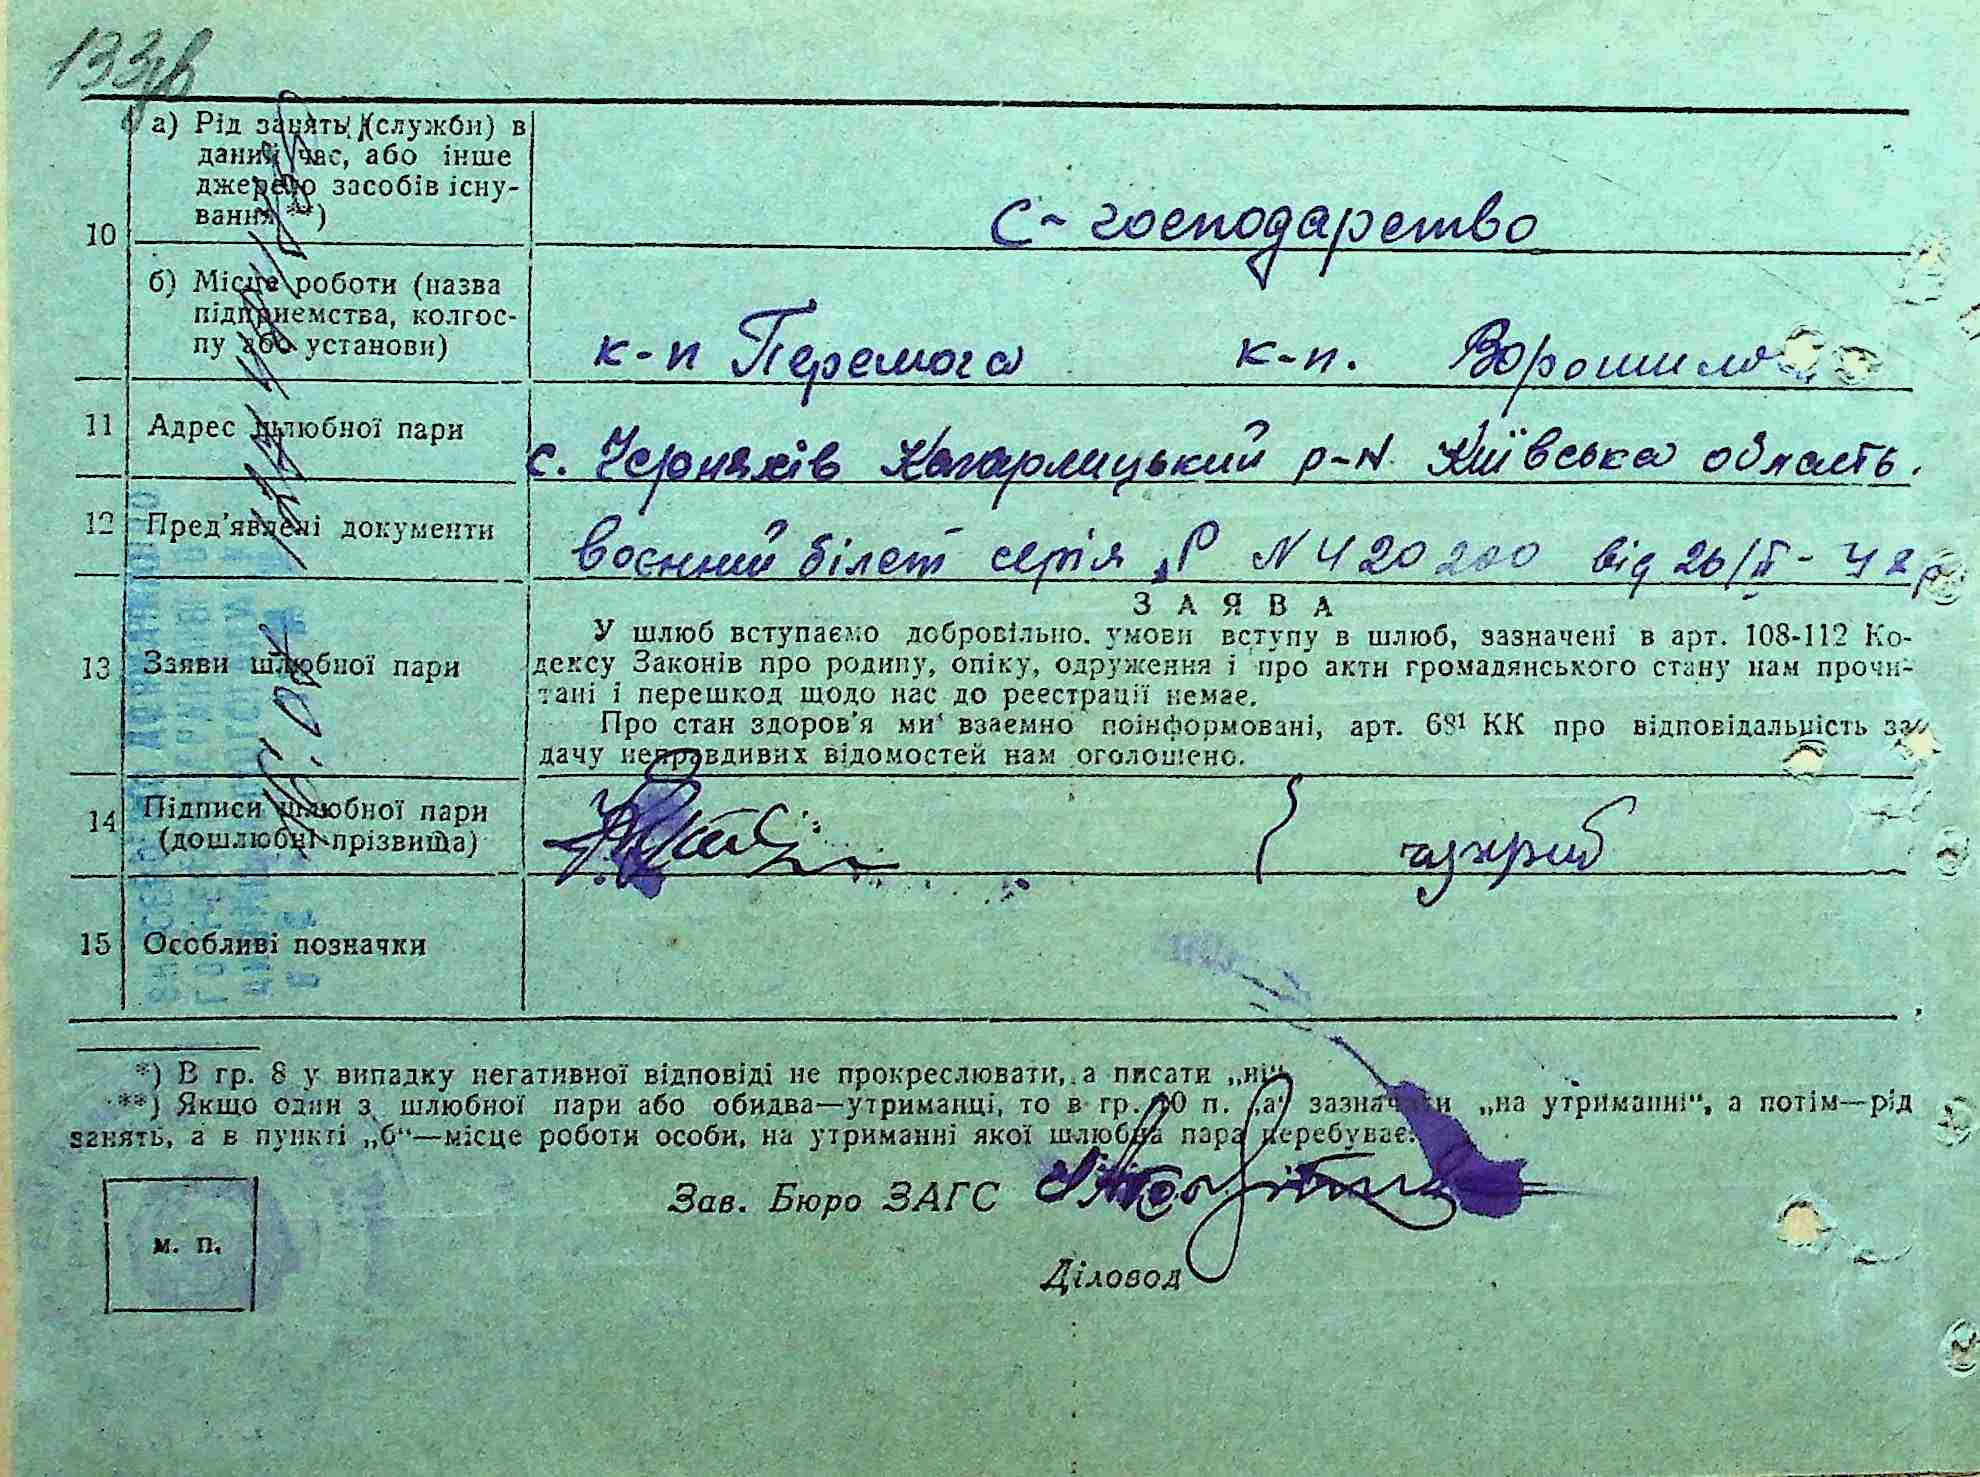 133
10
а) Рід занять (служби) в
даний час, або інше
джерело засобів існу-
вання **)
с - господарство
б) Місце роботи (назва
підприємства, колгос-
пу або установи)
к-п Перемога к-п. Ворошило
11 Адрес шлюбної пари
с. Черняхів Кагарлицький р-н Київська область.
12 Пред'явлені документи
воєнний білет серія „Р N 420200 від 26/II - 42р
13 Заяви шлюбної пари
ЗАЯВА
У шлюб вступаємо добровільно. умови вступу в шлюб, зазначені в арт. 108-112 Ко-
дексу Законів про родину, опіку, одруження і про акти громадянського стану нам прочи-
тані і перешкод щодо нас до реєстрації немає.
Про стан здоров'я ми взаємно поінформовані, арт. 68¹ КК про відповідальність за
дачу неправдивих відомостей нам оголошено.
14 Підписи шлюбної пари
(дошлюбні прізвища)
15 Особливі позначки
*) В гр. 8 у випадку негативної відповіді не прокреслювати, а писати „ні“
**) Якщо один з шлюбної пари або обидва—утриманці, то в гр. 10 п. „а“ зазначати „на утриманні“, а потім—рід
занять, а в пункті „б“—місце роботи особи, на утриманні якої шлюбна пара перебуває.
Зав. Бюро ЗАГС
м. п.
Діловод